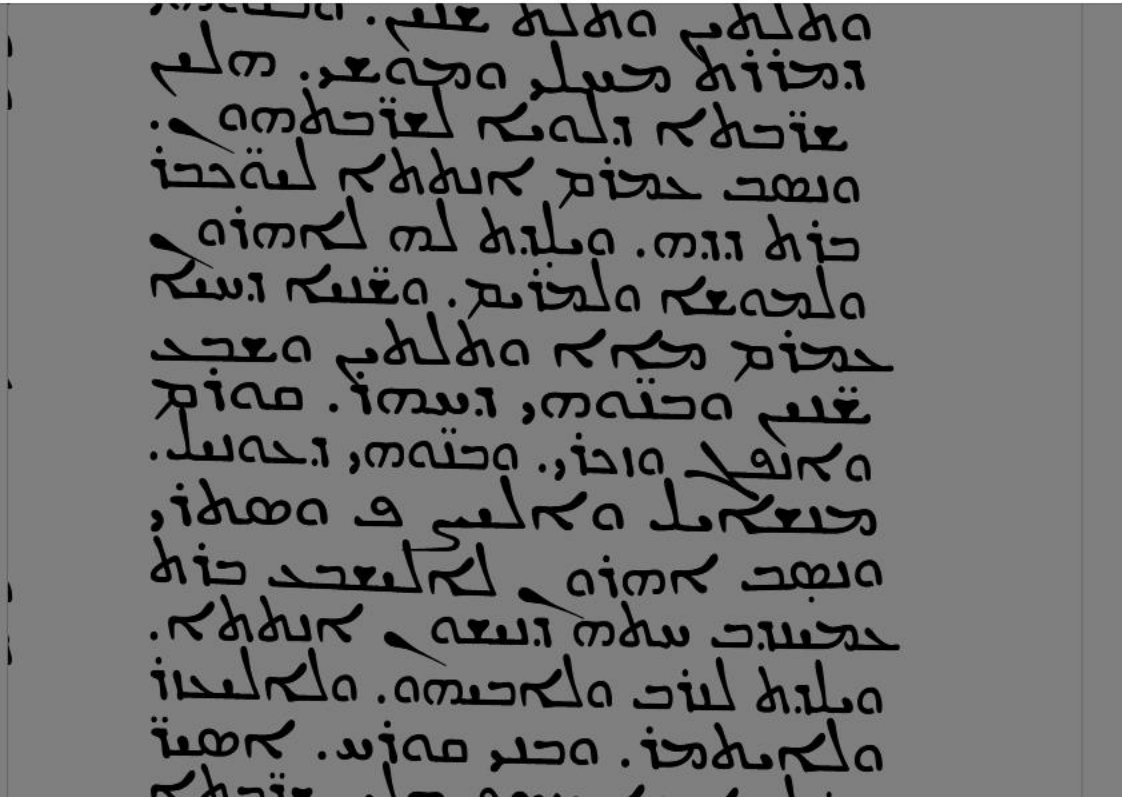 ܘܬܠܬܝܢ ܘܬܠܬ ܫܢܝܢ.
ܕܡܪܪܬ ܡܚܠܝ ܘܡܘܫܝ. ܗܠܝܢ
ܫܪ̈ܒܬܐ ܕܠܘܝܐ ܠܫܪ̈ܒܬܗܘܢ.
ܘܢܣܒ ܥܡܪܡ ܐܢܬܬܐ ܠܝܘ̈ܟܒܪ
ܒܪܬ ܕܕܗ. ܘܝܠܕܬ ܠܗ ܠܐܗܪܘܢ
ܘܠܡܘܫܐ ܘܠܡܪ̈ܝܡ. ܘܫ̈ܢܝܐ ܕܚܝܐ
ܥܡܪܡ ܡܐܐ ܘܬܠܬܝܢ ܘܫܒܥ
ܫ̈ܢܝܢ ܘܒܢܘ̈ܗܝ ܕܝܨܗܪ. ܩܘܪܡ
ܘܐܢܦܓ ܘܙܟܪܝ. ܘܒܢܘ̈ܗܝ ܕܥܘܙܝܠ.
ܡܝܫܐܝܠ ܘܐܠܝܨܦܢ ܘܣܬܪܝ
ܘܢܣܒ ܐܗܪܘܢ ܠܐܠܝܫܒܥ ܒܪܬ
ܥܡܝܢܕܒ ܚܬܗ ܕܢܚܫܘܢ ܐܢܬܬܐ.
ܘܝܠܕܬ ܠܢܕܒ ܘܠܐܒܝܗܘ. ܘܠܐܠܝܥܙܪ
ܘܠܐܝܬܡܪ. ܘܒܢܝ ܩܘܪܚ. ܐܣܝܪ̈